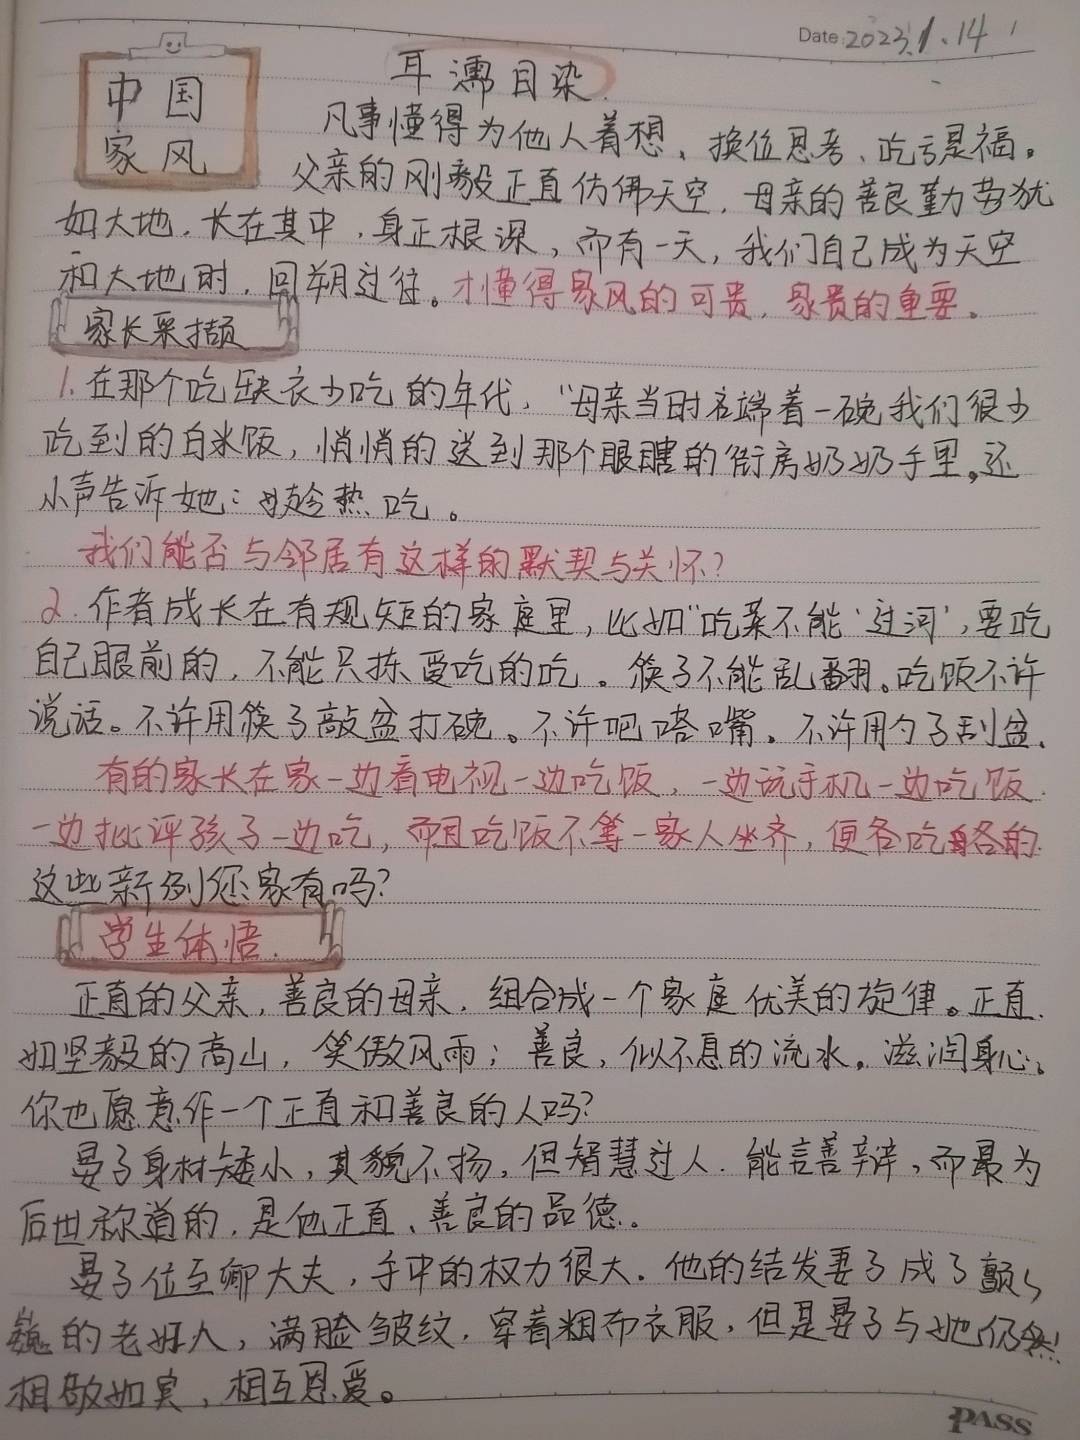 Date: 2023.1.14
中国
家风
耳濡目染.
凡事懂得为他人着想、换位思考、吃亏是福。
父亲的刚毅正直仿佛天空,母亲的善良勤劳犹
如大地,长在其中,身正根深,而有一天,我们自己成为天空
和大地时,回朔过往。才懂得家风的可贵,家贵的重要。
家长采撷
1.在那个吃缺衣少吃的年代,"母亲当时若端着一碗我们很少
吃到的白米饭,悄悄的送到那个眼瞎的街房奶奶手里。还
小声告诉她:趁热吃。
我们能否与邻居有这样的默契与关怀?
2.作者成长在有规矩的家庭里,比如"吃菜不能'过河',要吃
自己眼前的,不能只拣爱吃的吃。筷子不能乱翻。吃饭不许
说话。不许用筷子敲盆打碗。不许吧嗒嘴。不许用勺子刮盆.
有的家长在家一边看电视一边吃饭,一边玩手机一边吃饭.
一边批评孩子一边吃,而且吃饭不等一家人坐齐,便各吃各的.
这些新例您家有吗?
学生体悟.
正直的父亲,善良的母亲,组合成一个家庭优美的旋律。正直.
如坚毅的高山,笑傲风雨;善良,似不息的流水。滋润身心。
你也愿意作一个正直和善良的人吗?
晏子身材矮小,其貌不扬,但智慧过人.能言善辩,而最为
后世称道的,是他正直、善良的品德。
晏子位至卿大夫,手中的权力很大.他的结发妻子成了颤
巍的老妇人,满脸皱纹,穿着粗布衣服,但是晏子与她仍然
相敬如宾,相互恩爱。
PASS